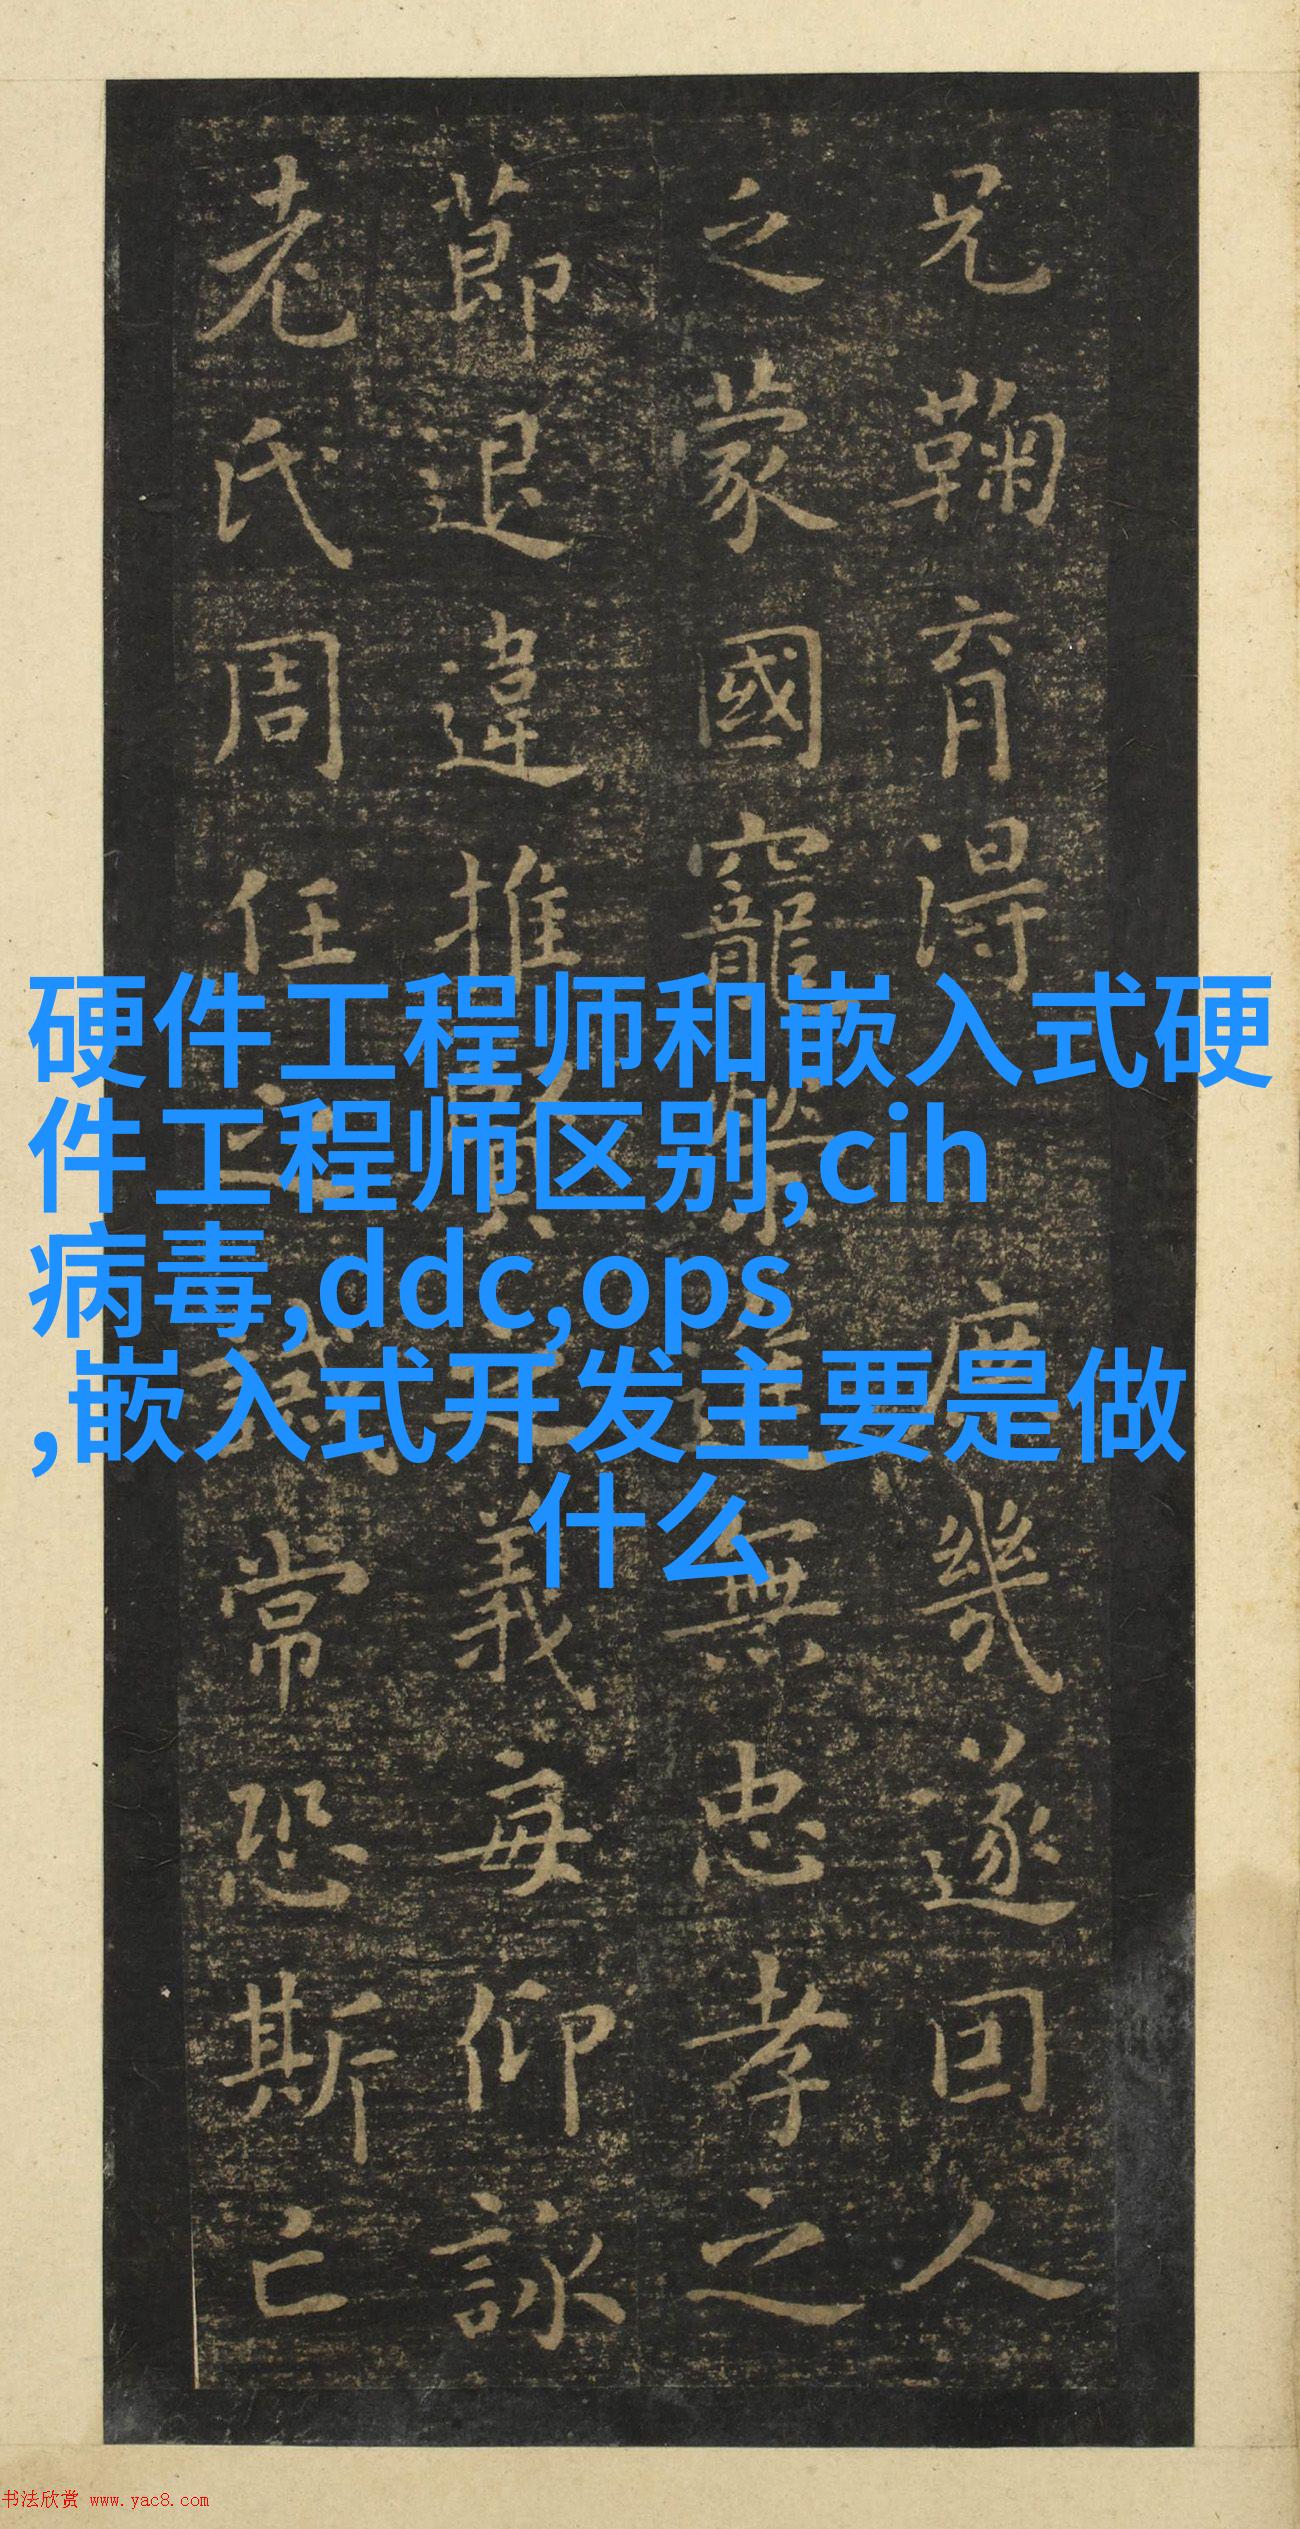 兄鞠育淂庶幾遂囙人
之蒙國寵榮進無忠孝之
莭退違推賢之義每仰詠
老氏周任之誡常恐斯亡
硬件工程师和嵌入式硬
件工程师区别,cih
病毒,ddc,ops
,嵌入式开发主要是做
什么
书法欣赏 www.yac8.com